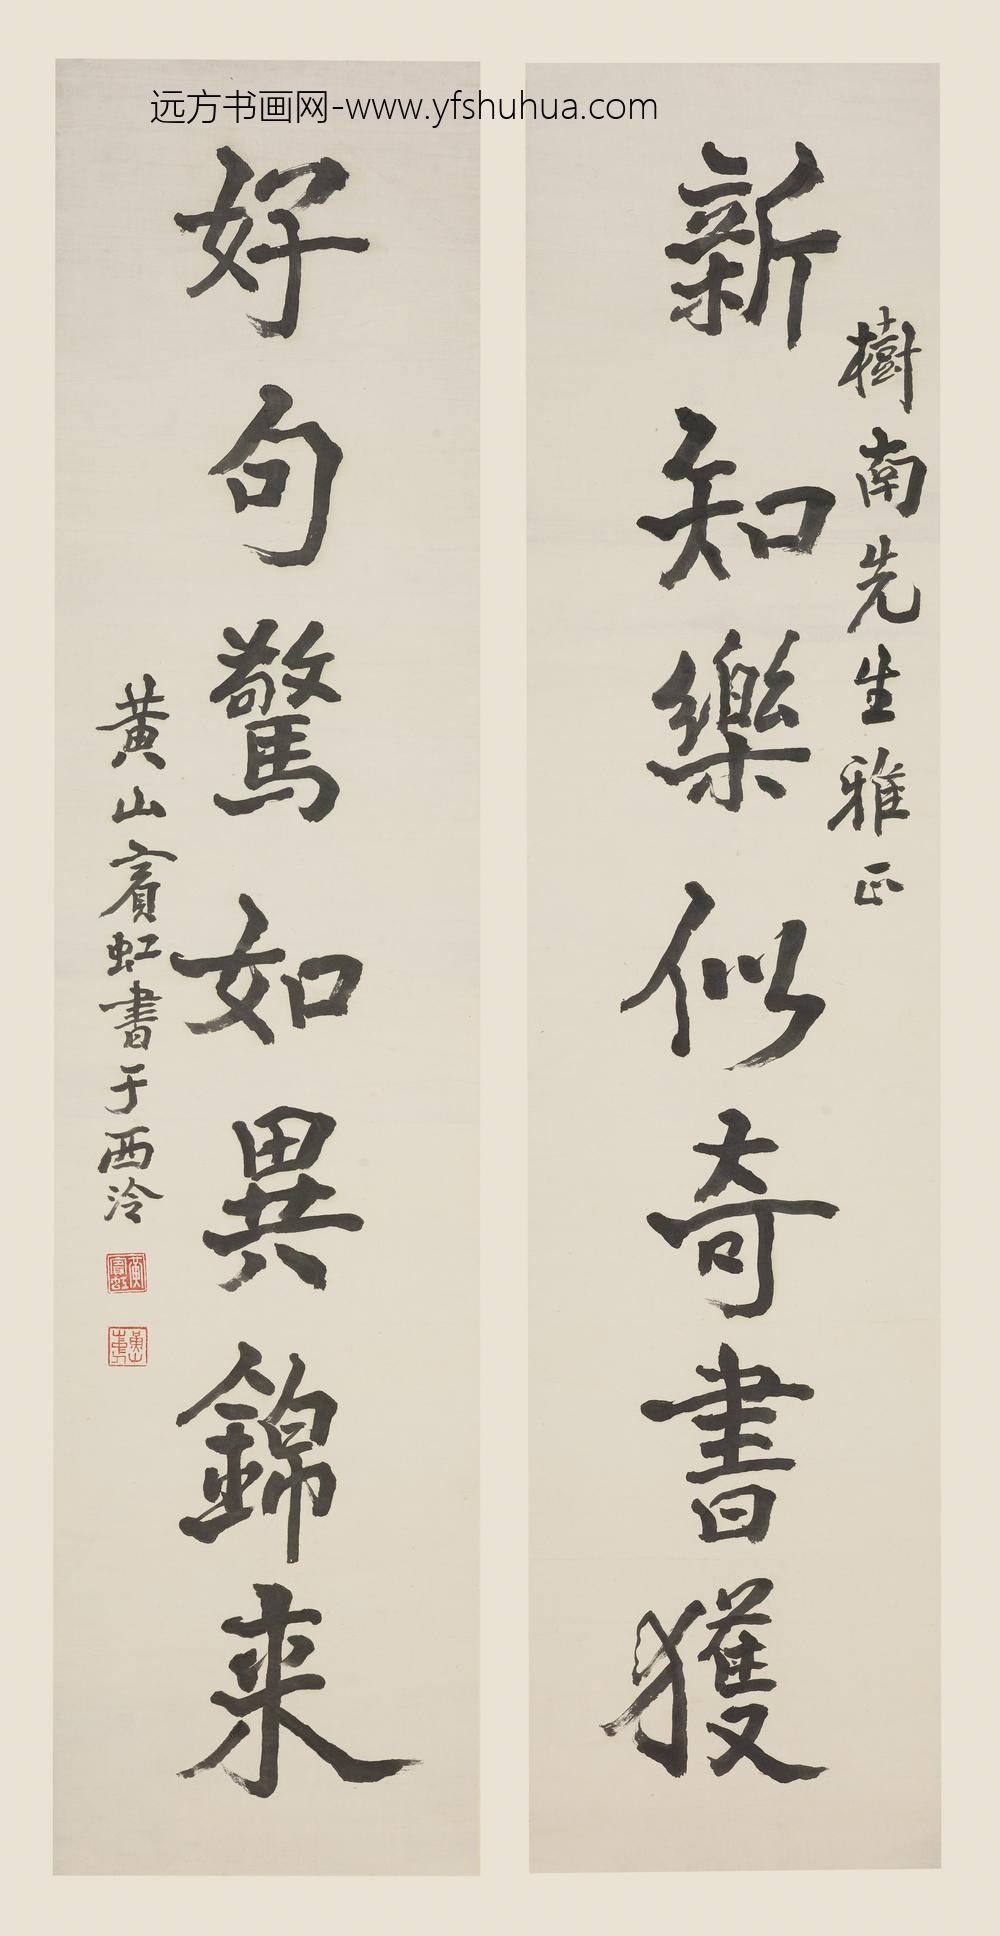 远方书画网-www.yfshuhua.com
樹南先生雅正
新知樂似奇書獲
好句驚如異錦来
黄山賓虹書于西泠